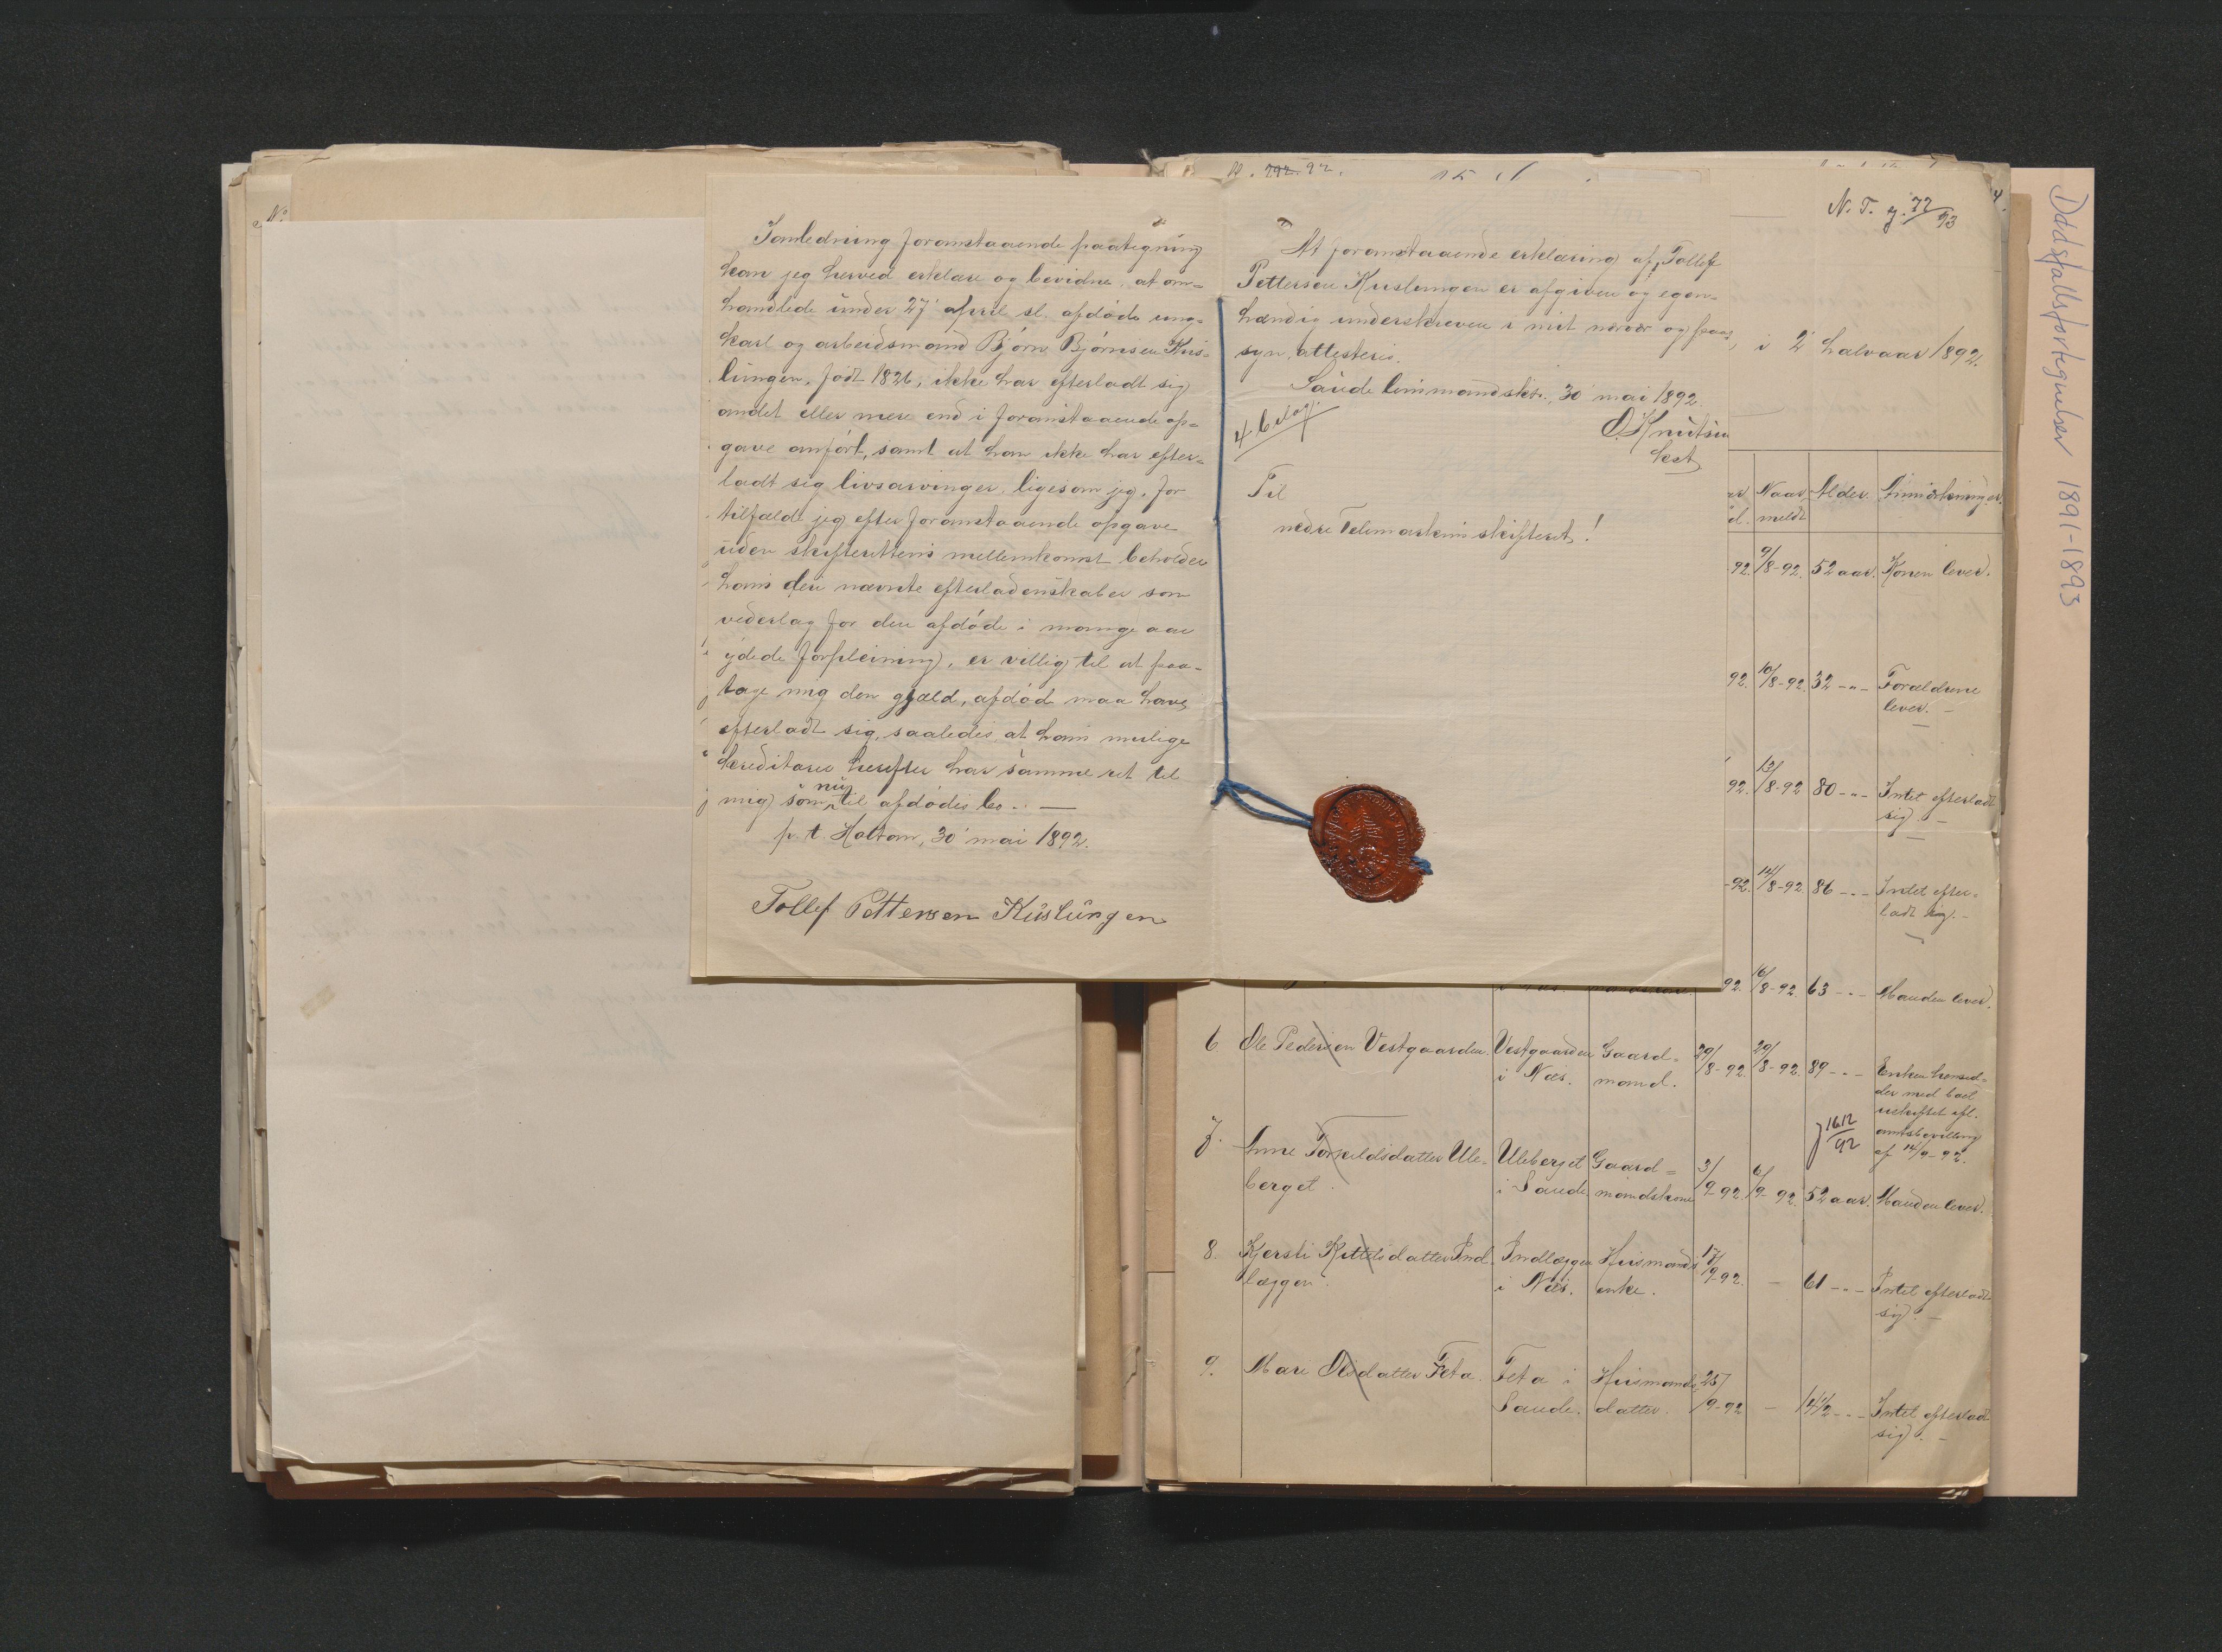 I anledning foranstaaende paategning
kan jeg herved erklære og bevidne, at om-
handlede under 27' april sl. afdøde ung-
karl og arbeidsmand Bjørn Bjørnsen Kus-
lungen, født 1826, ikke har efterladt sig
andet eller mere end i foranstaaende op-
gave anført, samt at han ikke har efter-
ladt sig livsarvinger, ligesom jeg, for
tilfælde jeg efter foranstaaende opgave
uden skifterettens mellemkomst beholder
hans deri nævnte efterladenskaber som
vederlag for den afdøde i mange aar
ydede forpleining, er villig til at paa-
tage mig den gjæld, afdød maa have
efterladt sig, saaledes, at hans mulige
kreditorer herefter har samme ret til
mig som nu til afdødes bo. —
p. t. Holtan, 30' mai 1892.
Tollef Pettersen Kuslungen
At foranstaaende erklæring af Tollef
Pettersen Kuslungen er afgiven og egen-
hændig underskreven i mit nærvær og paa-
syn, attesteres.
Saude lensmandsktr., 30' mai 1892.
O. Knutsen
kst.
4 bilag
Til
nedre Telemarkens skifteret!
792. 92.
N. T. j. 72/93
i 2' halvaar 1892.
Naar meldt
Alder.
Anmærkninger.
92. 9/8-92. 52 aar. Konen lever.
92. 10/8-92. 32 -"- Forældrene
lever. —
92. 13/8-92 80 -"- Intet efterladt
sig. —
-92. 14/8-92 86 -"- Intet efter-
ladt sig. —
92. 16/8-92. 63 -"- Manden lever.
6 Ole Pedersen Vestgaarden. Vestgaarden Gaard- 29/8-92. 29/8-92. 89 -"- Enken hensid-
i Næs. mand. der med boet
uskiftet ifl.
amtsbevilling
af 14/9-92.
j 1612/92
7. Anne Torkildsdatter Ule- Uleberget Gaard- 3/9-92. 6/9-92. 52 aar. Manden lever.
berget. i Saude. mandskone
8. Kjersti Kittelsdatter Ind- Indlæggen Husmands 17/9-92. — 61 -"- Intet efterladt
læggen. i Næs. enke. sig. —
9. Mari Olsdatter Feta. Feta i Husmands 25/9-92 — 14 1/2 -"- Intet efterladt
Saude. datter. sig. —
Dødsfallsfortegnelser 1891-1893
No